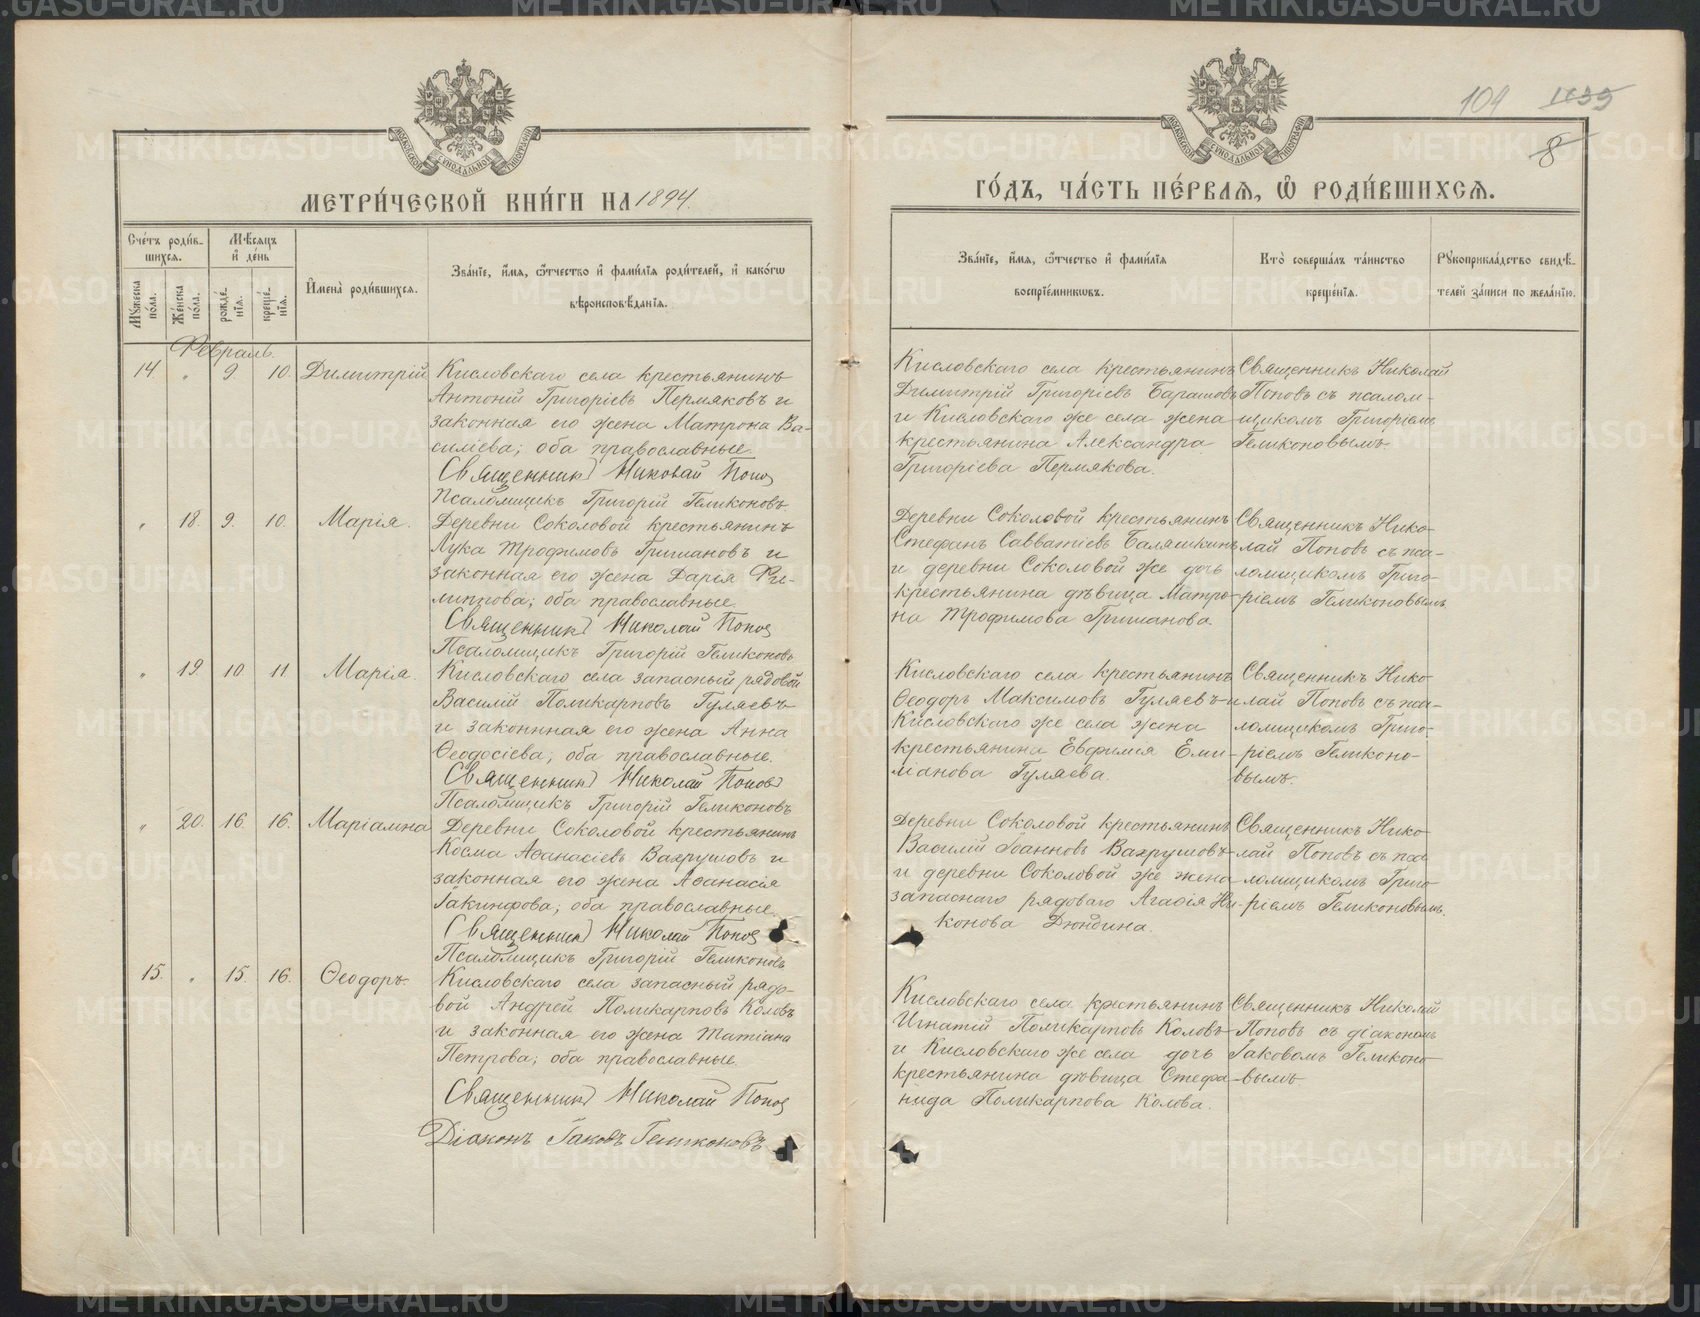 104 1139
8
МОСКОВСКОЙ СѴНОДАЛЬНОЙ ТИПОГРАФІИ
МОСКОВСКОЙ СѴНОДАЛЬНОЙ ТИПОГРАФІИ
МЕТРИ́ЧЕСКОЙ КНИ́ГИ НА 1894.
ГО́ДЪ, ЧА́СТЬ ПЕ́РВАЯ, Ѿ РОДИ́ВШИХСЯ.
Сче́тъ роди́в-
шихся.
Му́жеска по́ла.
Же́нска по́ла.
Мѣ́сяцъ
и҆ де́нь
рожде́-
нїя.
креще́-
нїя.
И҆мена̀ роди́вшихся.
Зва́нїе, и҆́мя, ѻ҆́тчество и҆ фами́лїя роди́телей, и҆ како́гѡ
вѣроисповѣ́данїя.
Зва́нїе, и҆́мя, ѻ҆́тчество и҆ фами́лїя
воспрїе́мникѡвъ.
Кто̀ соверша́лъ та́инство
креще́нїя.
Рꙋкоприкла́дство свидѣ́-
телей за́писи по жела́нїю.
Февраль.
14 „ 9. 10. Димитрій
Кисловскаго села крестьянинъ
Антоній Григоріевъ Пермяковъ и
законная его жена Матрона Ва-
силіева; оба православные.
Священникъ Николай Поповъ
Псаломщикъ Григорій Геликоновъ.
Кисловскаго села крестьянинъ
Димитрій Григоріевъ
и Кисловскаго же села жена
крестьянина Александра
Григоріева Пермякова.
Священникъ Николай
Поповъ съ псалом-
щикомъ Григоріемъ
Геликоновымъ.
„ 18. 9. 10. Марія.
Деревни Соколовой крестьянинъ
Лука Трофимовъ Гришановъ и
законная его жена Дарія Фи-
липпова; оба православные.
Священникъ Николай Поповъ
Псаломщикъ Григорій Геликоновъ
Деревни Соколовой крестьянинъ
Стефанъ Савватіевъ Балашкинъ
и деревни Соколовой же дочь
крестьянина дѣвица Матро-
на Трофимова Гришанова.
Священникъ Нико-
лай Поповъ съ пса-
ломщикомъ Григо-
ріемъ Геликоновымъ.
„ 19. 10. 11 Марія.
Кисловскаго села запасный рядовой
Василій Поликарповъ Гуляевъ
и законная его жена Анна
Ѳеодосіева; оба православные.
Священникъ Николай Поповъ
Псаломщикъ Григорій Геликоновъ
Кисловскаго села крестьянинъ
Ѳеодоръ Максимовъ Гуляевъ и
Кисловскаго же села жена
крестьянина Евфимія Еми-
ліанова Гуляева.
Священникъ Нико-
лай Поповъ съ пса-
ломщикомъ Григо-
ріемъ Геликоно-
вымъ.
„ 20. 16. 16. Маріамна
Деревни Соколовой крестьянинъ
Косма Аѳанасіевъ Вахрушовъ и
законная его жена Аѳанасія
Іакинфова; оба православные.
Священникъ Николай Поповъ
Псаломщикъ Григорій Геликоновъ
Деревни Соколовой крестьянинъ
Василій Іоанновъ Вахрушовъ
и деревни Соколовой же жена
запаснаго рядоваго Агаѳія Ни-
конова Дюндина.
Священникъ Нико-
лай Поповъ съ пса-
ломщикомъ Григо-
ріемъ Геликоновымъ.
15. „ 15. 16. Ѳеодоръ
Кисловскаго села запасный рядо-
вой Андрей Поликарповъ Коловъ
и законная его жена Татіана
Петрова; оба православные.
Священникъ Николай Поповъ
Діаконъ Іаковъ Геликоновъ
Кисловскаго села крестьянинъ
Игнатій Поликарповъ Коловъ
и Кисловскаго же села дочь
крестьянина дѣвица Стефа-
нида Поликарпова Колова.
Священникъ Николай
Поповъ съ діакономъ
Іаковомъ Геликоно-
вымъ